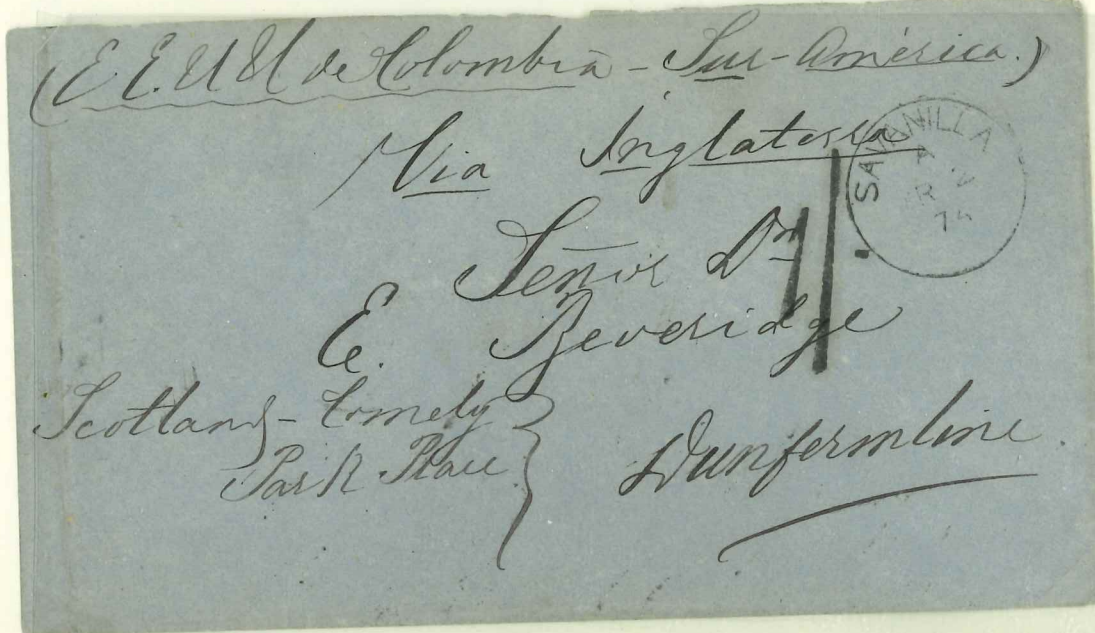 (E.E.U.U de Colombia - Sur-América.)
Via Inglaterra
SAVANILLA
Señor Dn
E. Beveridge
Scotland - Comely
Park Place
Dunfermline